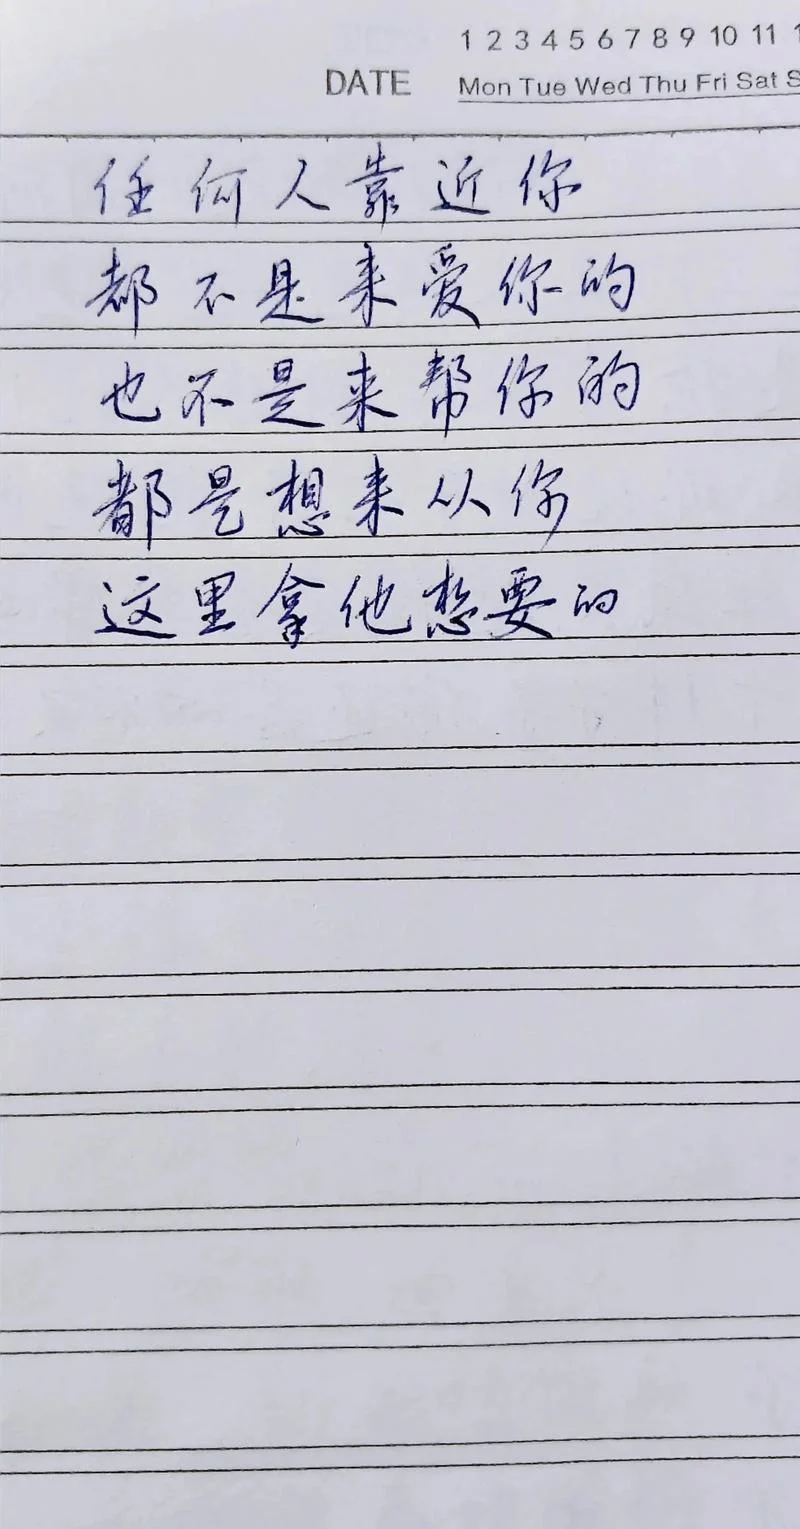 1 2 3 4 5 6 7 8 9 10 11 1
DATE Mon Tue Wed Thu Fri Sat S
任何人靠近你
都不是来爱你的
也不是来帮你的
都是想来从你
这里拿他想要的